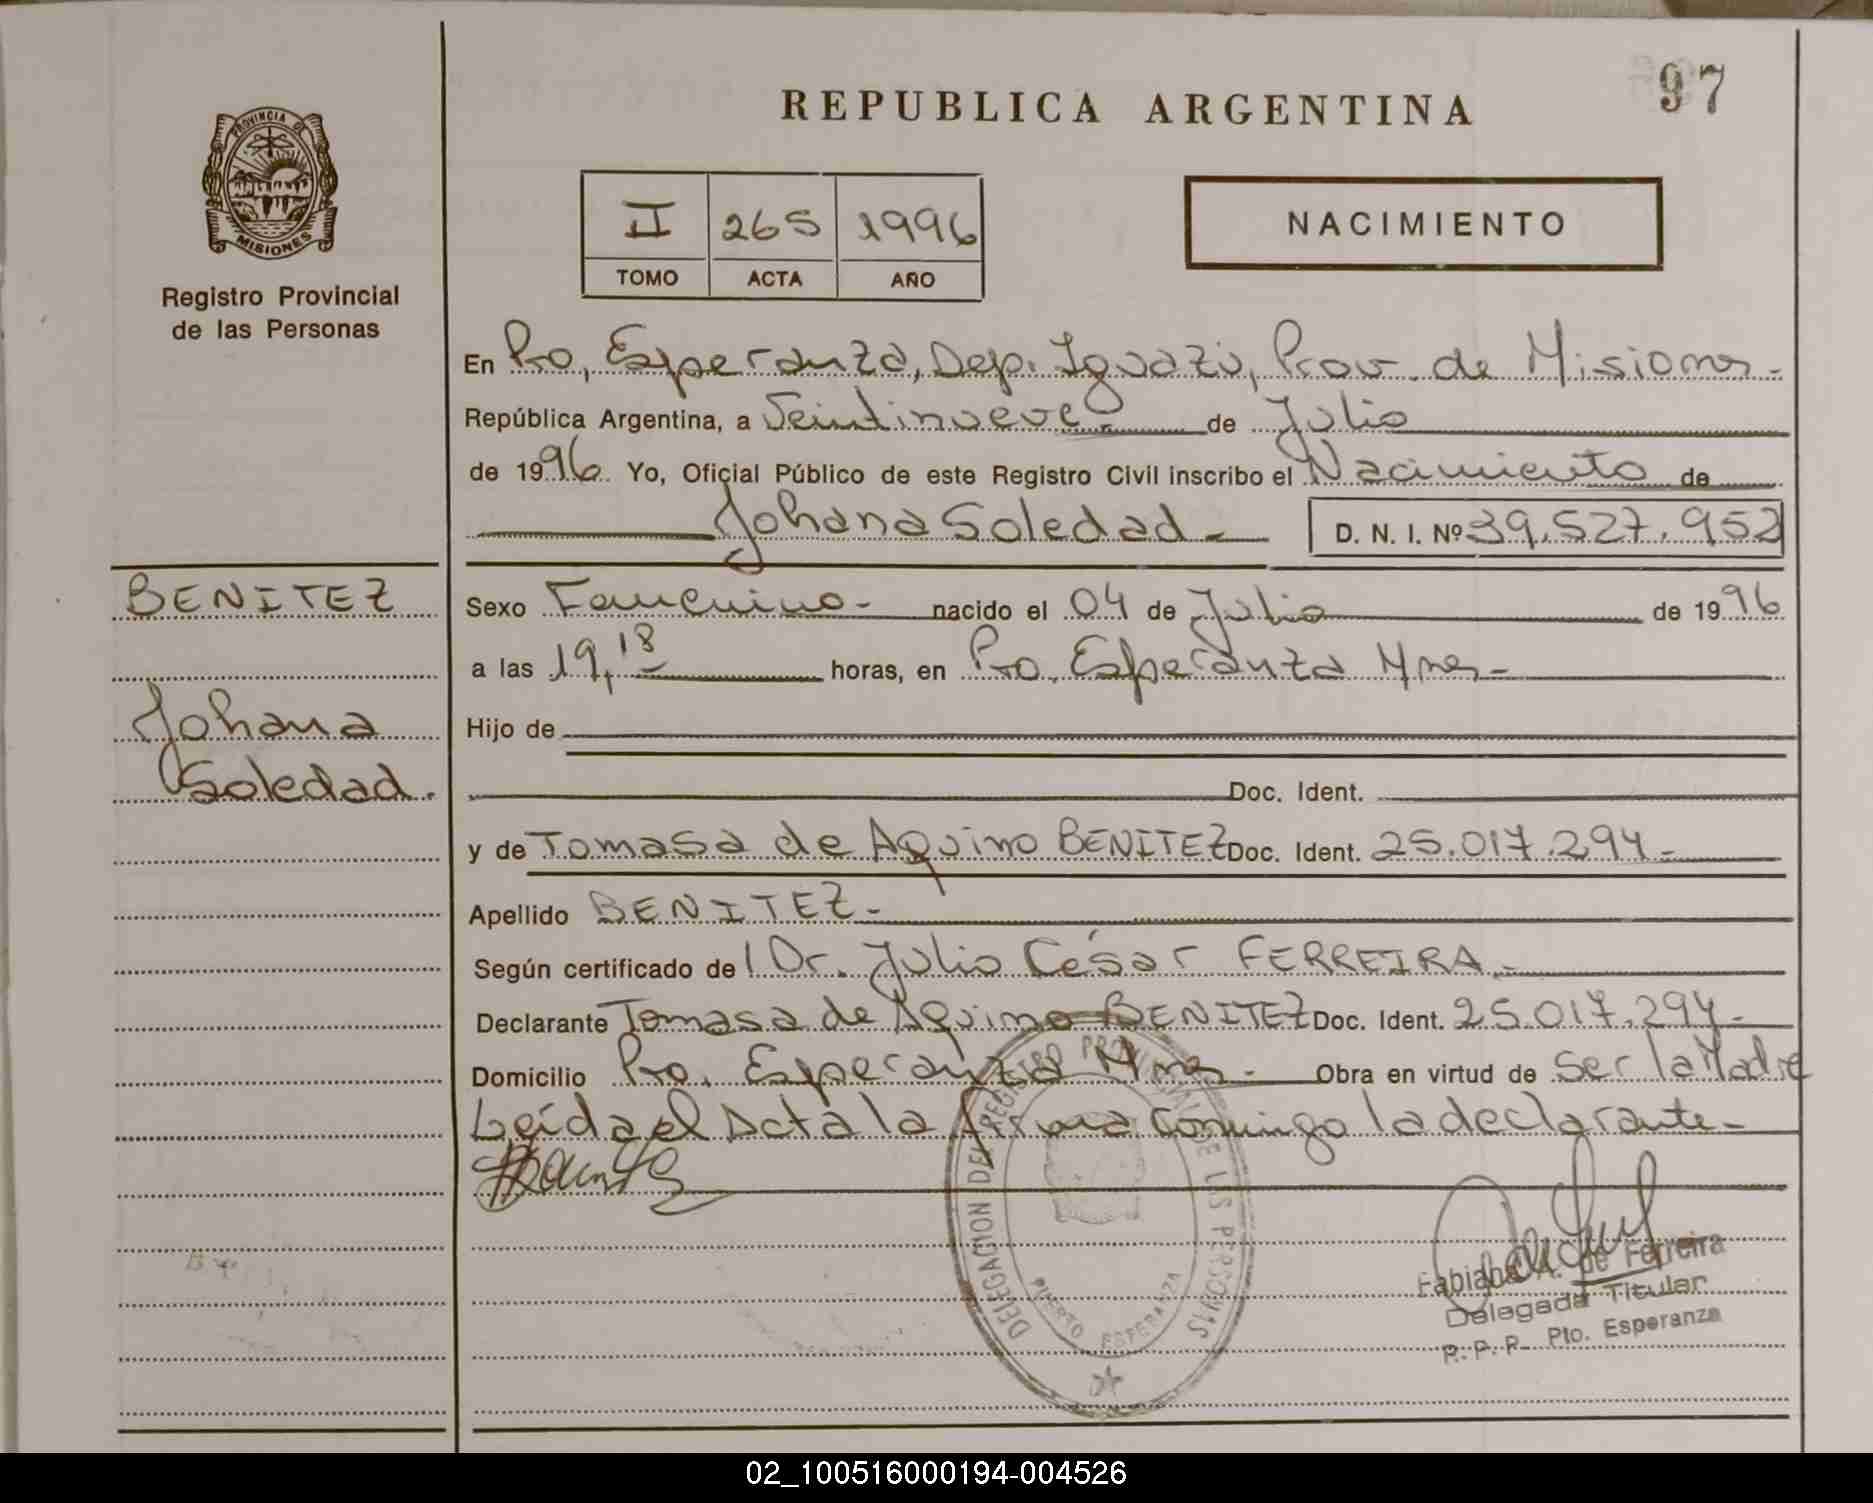 97
REPUBLICA ARGENTINA
PROVINCIA DE
MISIONES
Registro Provincial
de las Personas
II 265 1996
TOMO ACTA AÑO
NACIMIENTO
En Pto, Esperanza, Dep. Iguazú, Prov. de Misiones-
República Argentina, a Veintinueve- de Julio
de 1996 Yo, Oficial Público de este Registro Civil inscribo el Nacimiento de
Johana Soledad- D. N. I. Nº 39.527.952
BENITEZ
Johana
Soledad.
Sexo Femenino- nacido el 04 de Julio de 1996
a las 19,18 horas, en Pto. Esperanza Mnes-
Hijo de
Doc. Ident.
y de Tomasa de Aquino BENITEZ Doc. Ident. 25.017.294-
Apellido BENITEZ-
Según certificado de l Dr. Julio César FERREIRA-
Declarante Tomasa de Aquino BENITEZ Doc. Ident. 25.017.294-
Domicilio Pto. Esperanza Mnes- Obra en virtud de Ser la Madre
Leída el Acta la firma conmigo la declarante-
DELEGACION DEL REGISTRO PROVINCIAL DE LAS PERSONAS
PUERTO ESPERANZA
Fabiana A. de Ferreira
Delegada Titular
R. P. P. Pto. Esperanza
02_100516000194-004526